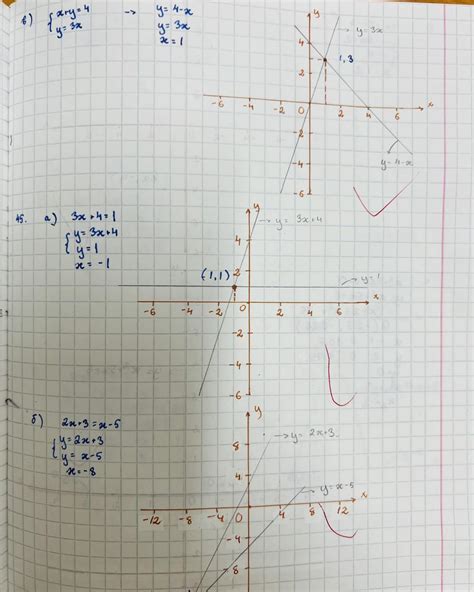 в) { x+y=4 → y=4-x
y=3x y=3x
x=1
y
y=3x
4
1,3
2
-6 -4 -2 2 4 6 x
-2
y=4-x
-4
-6
45. а) 3x+4=1
{ y=3x+4
y=1
x=-1
y
y=3x+4
4
(1,1) 2
y=1
-6 -4 -2 2 4 6 x
-2
-4
-6
б) 2x+3=x-5
{ y=2x+3
y=x-5
x=-8
y
y=2x+3
8
4
y=x-5
-12 -8 -4 4 8 12 x
-4
8